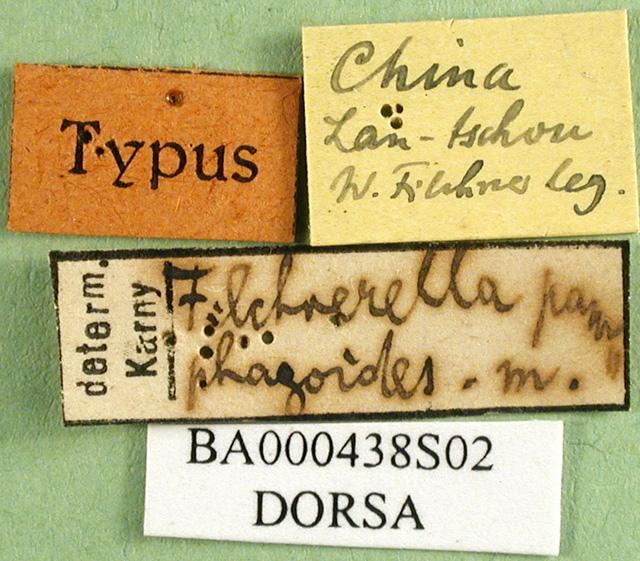 Typus
China
Lan-tschou
W. Filchner leg.
determ.
Karny
Filchnerella pam
phagoides . m .
BA000438S02
DORSA